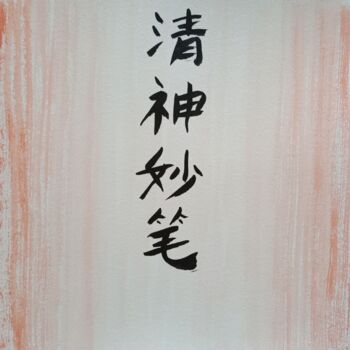 清神妙笔